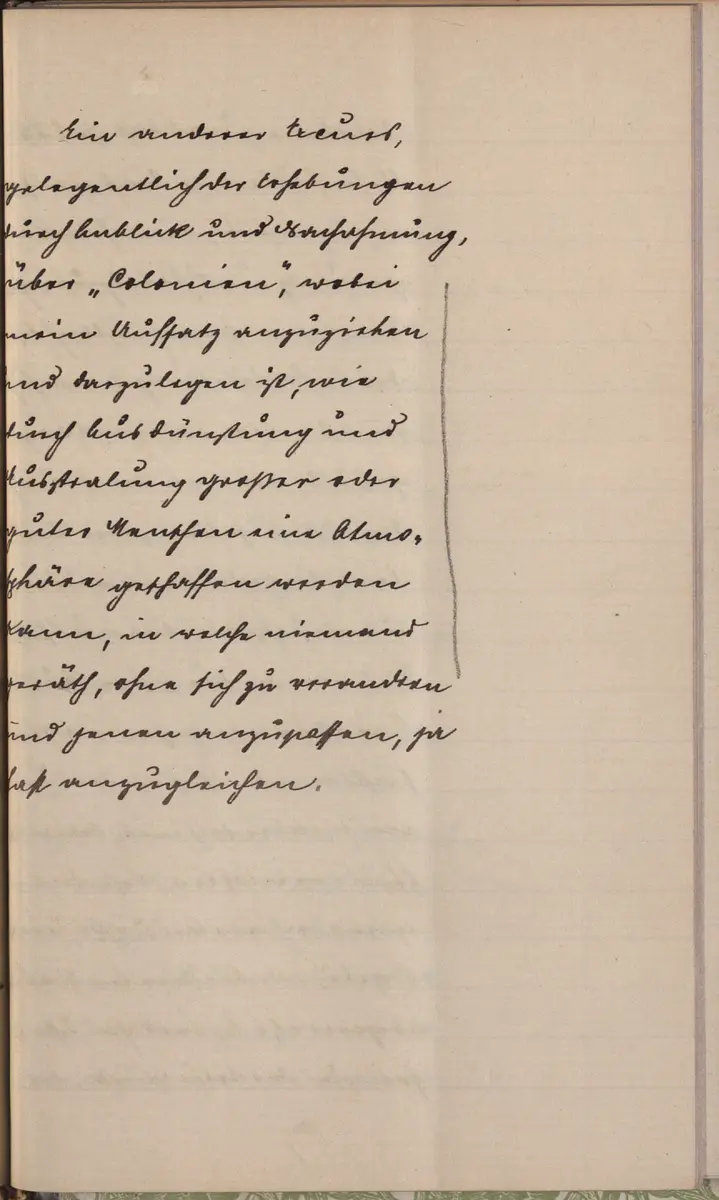 Ein anderer Excurs,
gelegentlich der Erhebungen
durch Anblick und Nachahmung,
über „Colonien“, wobei
mein Aufsatz anzuziehen
und darzulegen ist, wie
durch Ausdünstung und
Ausstralung großer oder
guter Menschen eine Atmo-
sphäre geschaffen werden
kann, in welche niemand
geräth, ohne sich zu verändren
und jenen anzupassen, ja
fast anzugleichen.